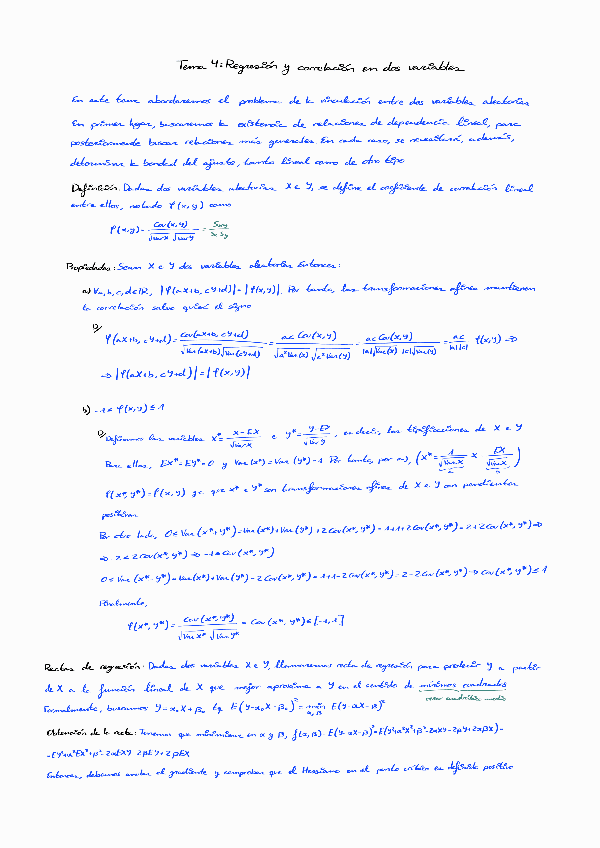 Tema 4: Regresión y correlación en dos variables
En este tema abordaremos el problema de la vinculación entre dos variables aleatorias
En primer lugar, buscaremos la existencia de relaciones de dependencia lineal, para
posteriormente buscar relaciones más generales. En cada caso, se necesitará, además,
determinar la bondad del ajuste, tanto lineal como de otro tipo
Definición. Dadas dos variables aleatorias X e Y, se define el coeficiente de correlación lineal
entre ellas, notado ρ(x,y) como
ρ(x,y) = Cov(x,y) / √Var X √Var Y = Sxy / Sx Sy
Propiedades: Sean X e Y dos variables aleatorias. Entonces:
a) ∀a,b,c,d∈ℝ, |ρ(aX+b, cY+d)| = |ρ(x,y)|. Por tanto, las transformaciones afines mantienen
la correlación salvo quizás de signo
D/ ρ(aX+b, cY+d) = Cov(aX+b, cY+d) / √Var(aX+b) √Var(cY+d) = ac Cov(x,y) / √a²Var(x) √c²Var(y) = ac Cov(x,y) / |a|√Var(x) |c|√Var(y) = ac / |a||c| ρ(x,y) ⇒
⇒ |ρ(aX+b, cY+d)| = |ρ(x,y)|
b) -1 ≤ ρ(x,y) ≤ 1
D/ Definamos las variables X* = X-EX / √Var X e Y* = Y-EY / √Var Y, es decir, las tipificaciones de X e Y
Para ellas, EX* = EY* = 0 y Var(x*) = Var(y*) = 1. Por tanto, por a), (X* = 1/√Var X X EX/√Var X)
ρ(x*,y*) = ρ(x,y) ya que x* e y* son transformaciones afines de X e Y con pendientes
positivas
Por otro lado, 0 ≤ Var(x*+y*) = Var(x*) + Var(y*) + 2Cov(x*,y*) = 1+1+2Cov(x*,y*) = 2+2Cov(x*,y*) ⇒
⇒ -2 ≤ 2Cov(x*,y*) ⇒ -1 ≤ Cov(x*,y*)
0 ≤ Var(x*-y*) = Var(x*) + Var(y*) - 2Cov(x*,y*) = 1+1-2Cov(x*,y*) = 2-2Cov(x*,y*) ⇒ Cov(x*,y*) ≤ 1
Finalmente,
ρ(x*,y*) = Cov(x*,y*) / √Var x* √Var y* = Cov(x*,y*) ∈ [-1,1]
Rectas de regresión. Dadas dos variables X e Y, llamaremos recta de regresión para predecir Y a partir
de X a la función lineal de X que mejor aproxima a Y en el sentido de mínimos cuadrados
error cuadrático medio
Formalmente, buscamos Y = α₀X + β₀ tq E(Y-α₀X-β₀)² = min α,β E(Y-αX-β)²
Obtención de la recta: Tenemos que minimizar en α y β, f(α,β) = E(Y-αX-β)² = E(Y²+α²X²+β²-2αXY-2βY+2αβX) =
= EY²+α²EX²+β²-2αEXY-2βEY+2βEX
Entonces, debemos anular el gradiente y comprobar que el Hessiano en el punto crítico es definido positivo